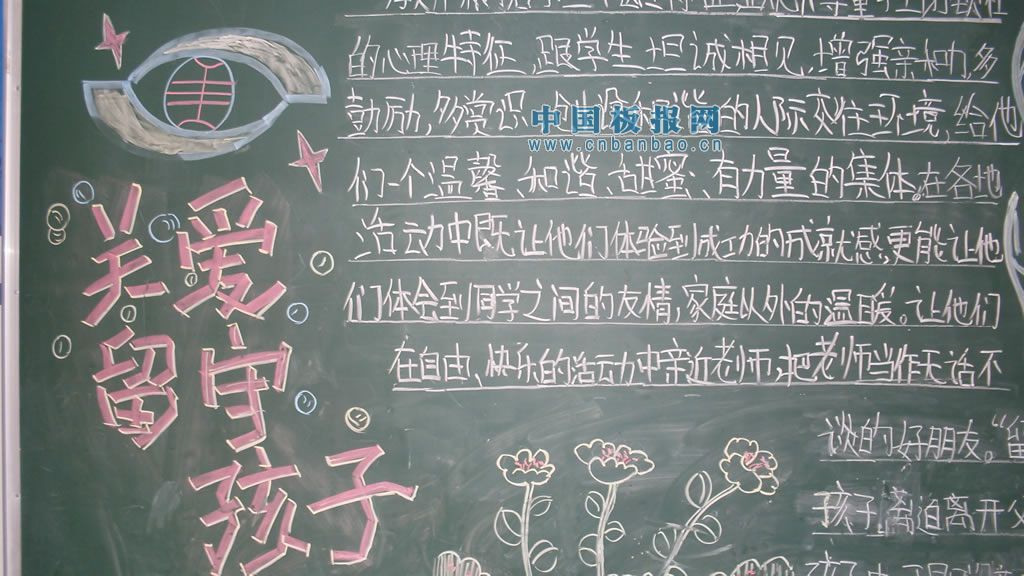 关爱
留守
孩子
的心理特征,跟学生坦诚相见,增强亲和力,多
鼓励,多赏识,的人际交往环境,给他
们一个温馨、和谐、甜蜜、有力量的集体。在各地
活动中既让他们体验到成功的成就感,更能让他
们体会到同学之间的友情,家庭以外的温暖。让他们
在自由、快乐的活动中亲近老师,把老师当作无话不
谈的好朋友。“留
孩子离迫离开父
中国板报网
www.cnbanbao.cn